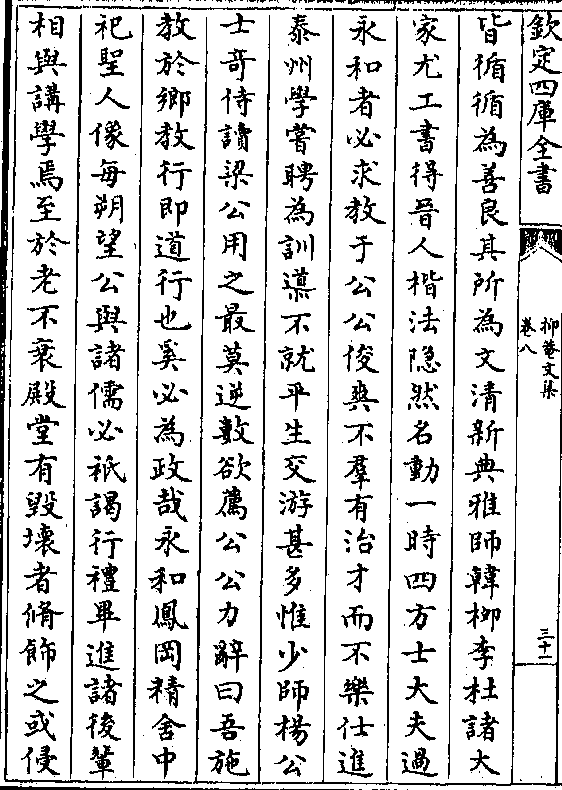 欽定四庫全書
抑菴文集
卷八
三十一
皆循循為善良其所為文清新典雅師韓柳李杜諸大
家尤工書得晉人楷法隱然名動一時四方士大夫過
永和者必求教于公公俊爽不羣有治才而不樂仕進
泰州學嘗聘為訓導不就平生交游甚多惟少師楊公
士奇侍讀梁公用之最莫逆數欲薦公公力辭曰吾施
教於鄉教行即道行也奚必為政哉永和鳳岡精舍中
祀聖人像每朔望公與諸儒必祇謁行禮畢進諸後輩
相與講學焉至於老不衰殿堂有毀壞者脩飾之或侵